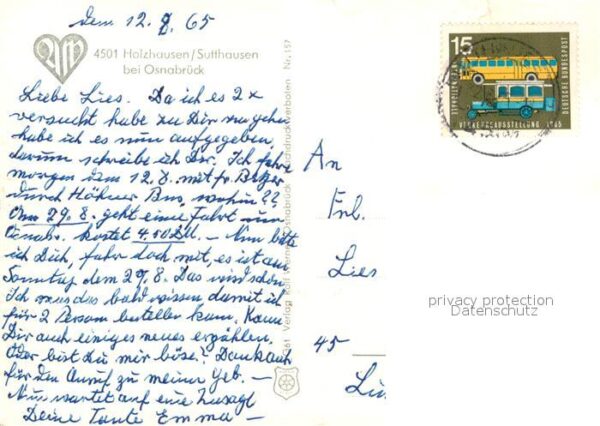 dem 12. 8. 65
4501 Holzhausen/Sutthausen
bei Osnabrück
Liebe Lies. Da ich es 2x
versucht habe zu Dir zu gehen
habe ich es nun aufgegeben,
darum schreibe ich Dir. Ich fahre
morgen dem 12.8. mit fr.
durch Höhner Bus, wohin??
Am 29.8. geht eine Fahrt um
Osnabr. kostet 4.50 DM. – Nun bitte
ich Dich, fahr doch mit, es ist am
Sonntag dem 29.8. Das wird schön
Ich mus das bald wissen, damit ich
für 2 Person bestellen kann. Kann
Dir auch einiges neues erzählen.
Oder bist Du mir böse? Dank auch
für den Anruf zu meiner Geb. –
Nun wartet auf eine Zusage
Deine Tante Emma –
Nr. 157
Nachdruck verboten
Osnabrück
Verlag
15
VERKEHRSAUSSTELLUNG 1965
DEUTSCHE BUNDESPOST
An
Frl.
Lies
45
privacy protection
Datenschutz